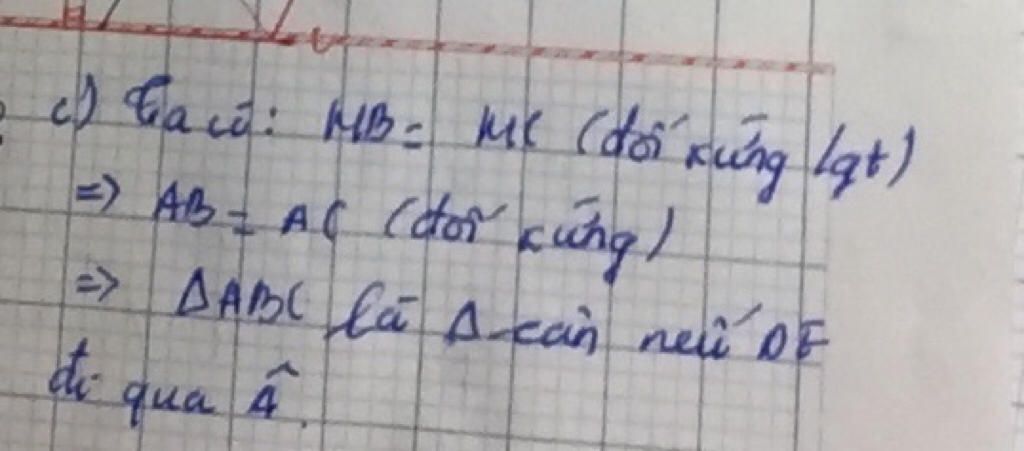 c) Ta có: MB = MC (đối xứng /gt)
=> AB = AC (đối xứng)
=> ΔABC là Δ cân nếu DE
đi qua Â.